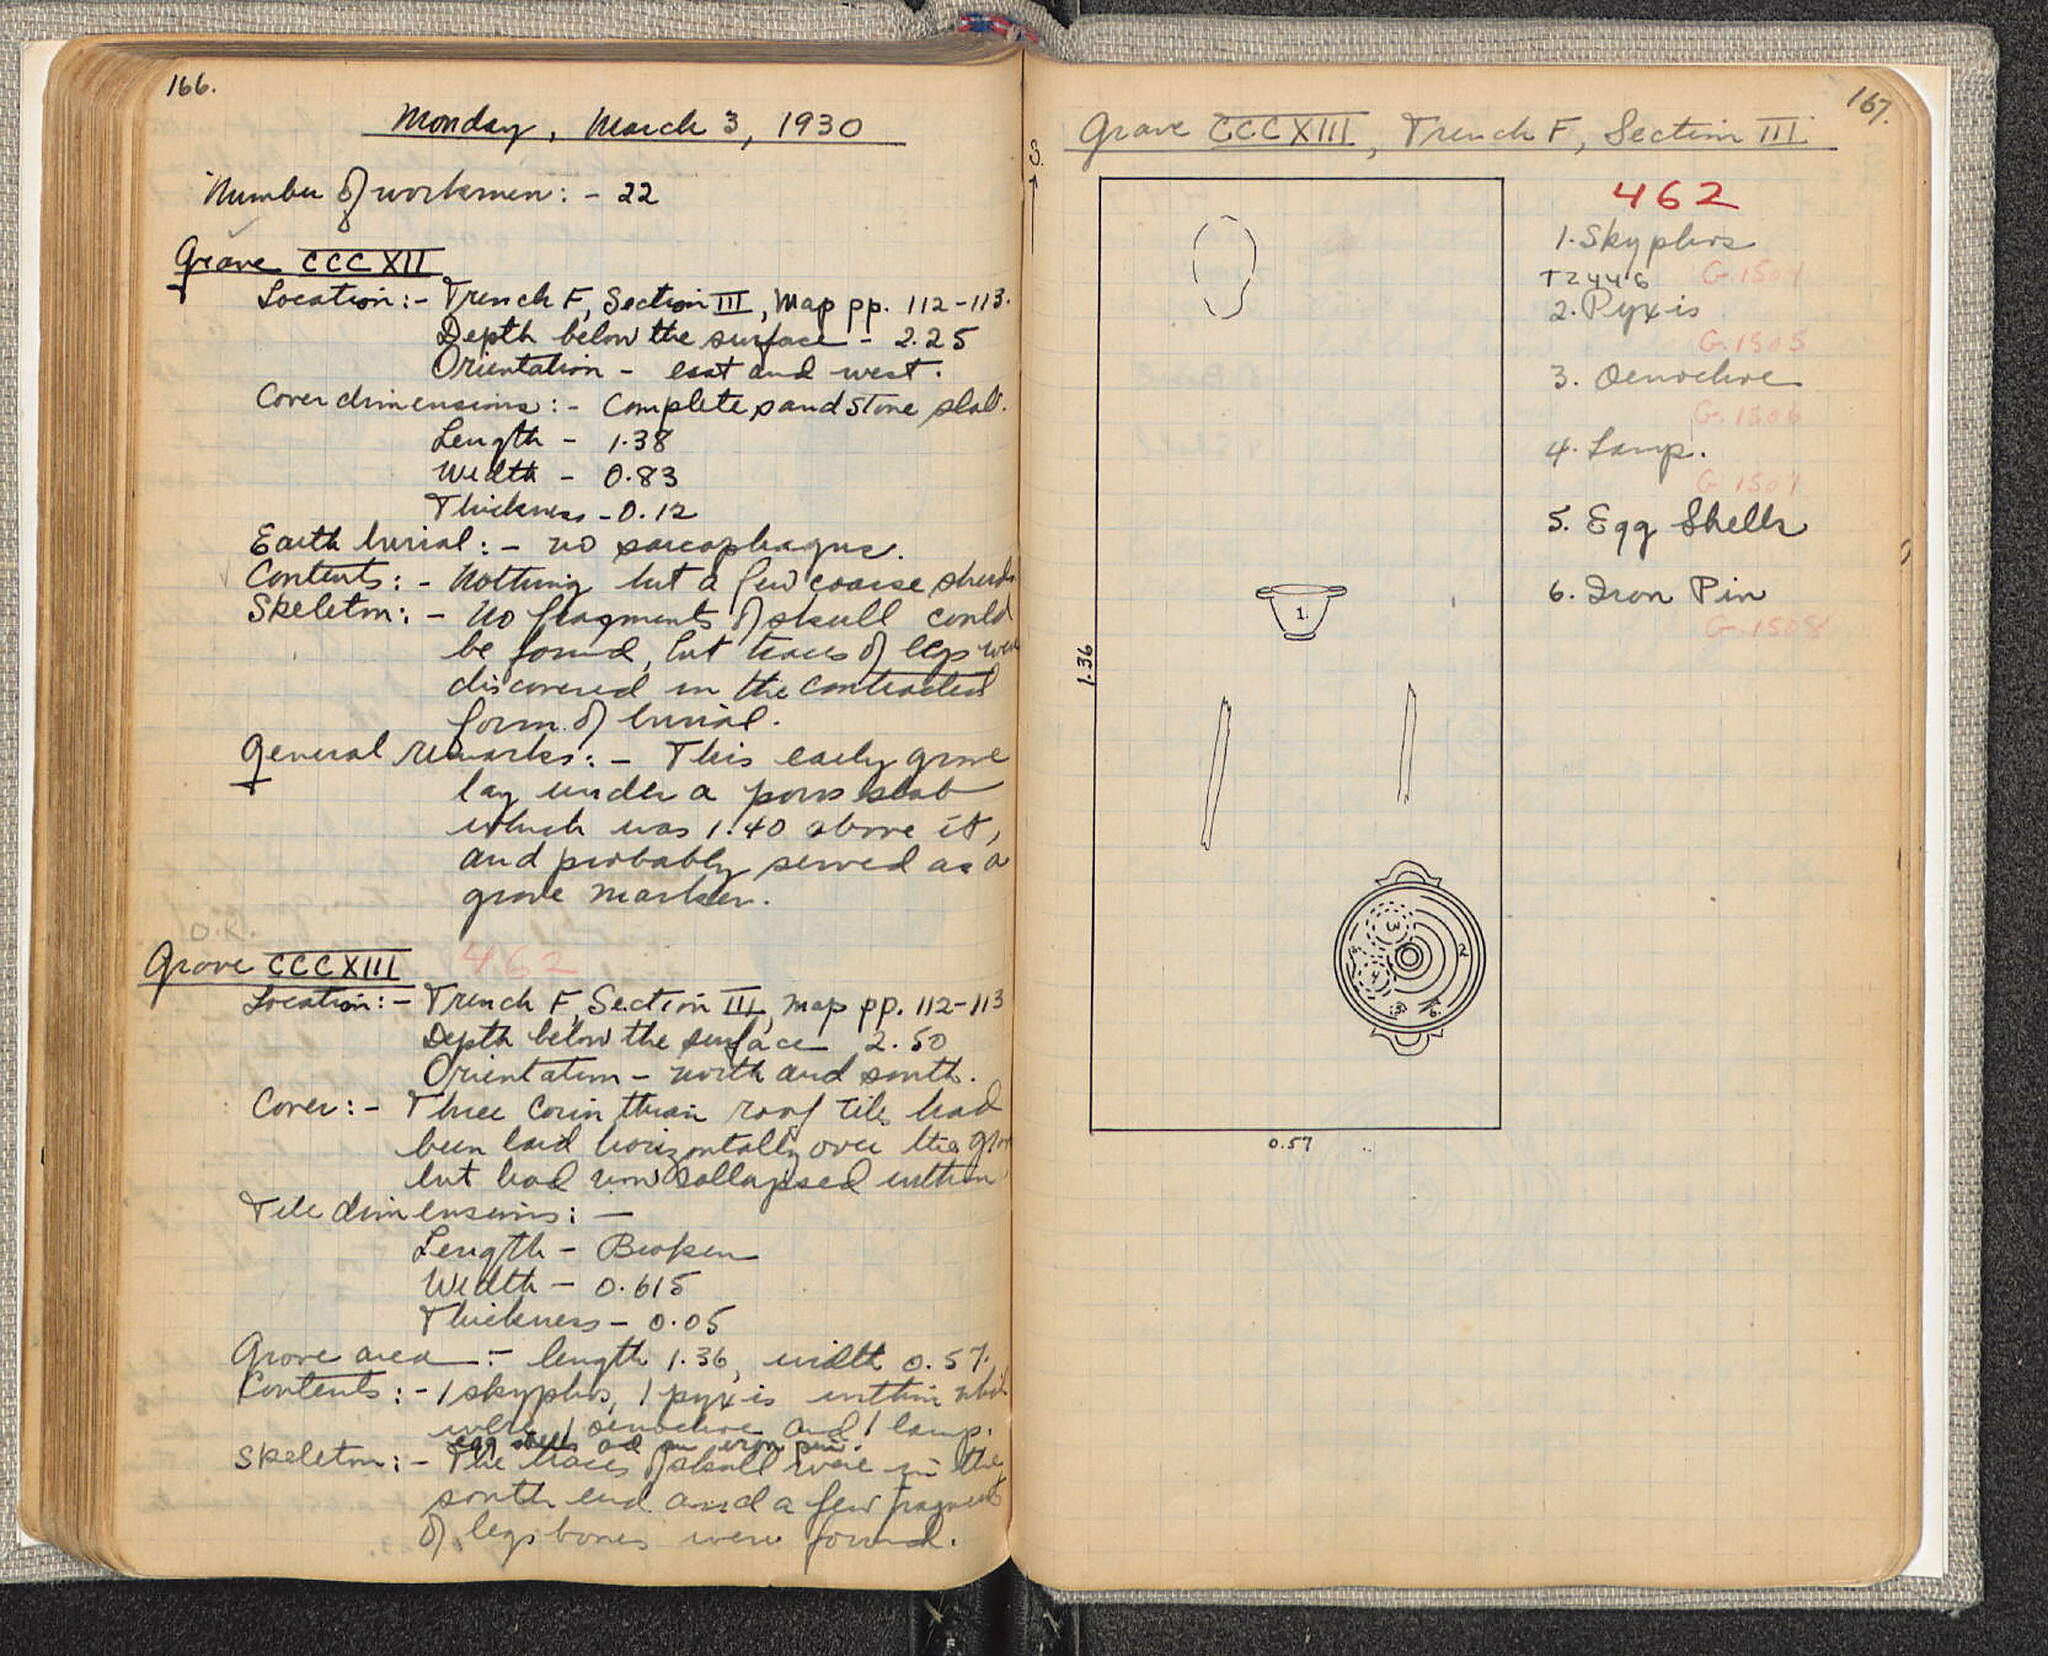 166.
Monday, March 3, 1930
Number of workmen: - 22
Grave CCCXII
Location: - Trench F, Section III, Map pp. 112-113.
Depth below the surface - 2.25
Orientation - east and west.
Cover dimensions: - Complete sandstone slab.
Length - 1.38
Width - 0.83
Thickness - 0.12
Earth burial: - no sarcophagus.
Contents: - Nothing but a few coarse sherds
Skeleton: - No fragments of skull could
be found, but traces of legs were
discovered in the contracted
form of burial.
General remarks: - This early grave
lay under a poros slab
which was 1.40 above it,
and probably served as a
grave marker.
O.K.
Grave CCCXIII 462
Location: - Trench F, Section III, Map pp. 112-113
Depth below the surface 2.50
Orientation - north and south.
Cover: - Three Corinthian roof tiles had
been laid horizontally over the
but had now collapsed within
Tile dimensions: -
Length - Broken
Width - 0.615
Thickness - 0.05
Grave area: - length 1.36, width 0.57.
Contents: - 1 skyphos, 1 pyxis within which
were 1 oenochoe and 1 lamp.
egg shells and an iron pin.
Skeleton: - The traces of skull were in the
south end and a few fragments
of legs bones were found.
167.
Grave CCCXIII, Trench F, Section III
S.
462
1. Skyphos
T2446
2. Pyxis
G.1505
3. Oenochoe
G.1506
4. Lamp.
G.1507
5. Egg Shells
6. Iron Pin
G.1508
1.
1.36
3
2
4
5
6.
0.57